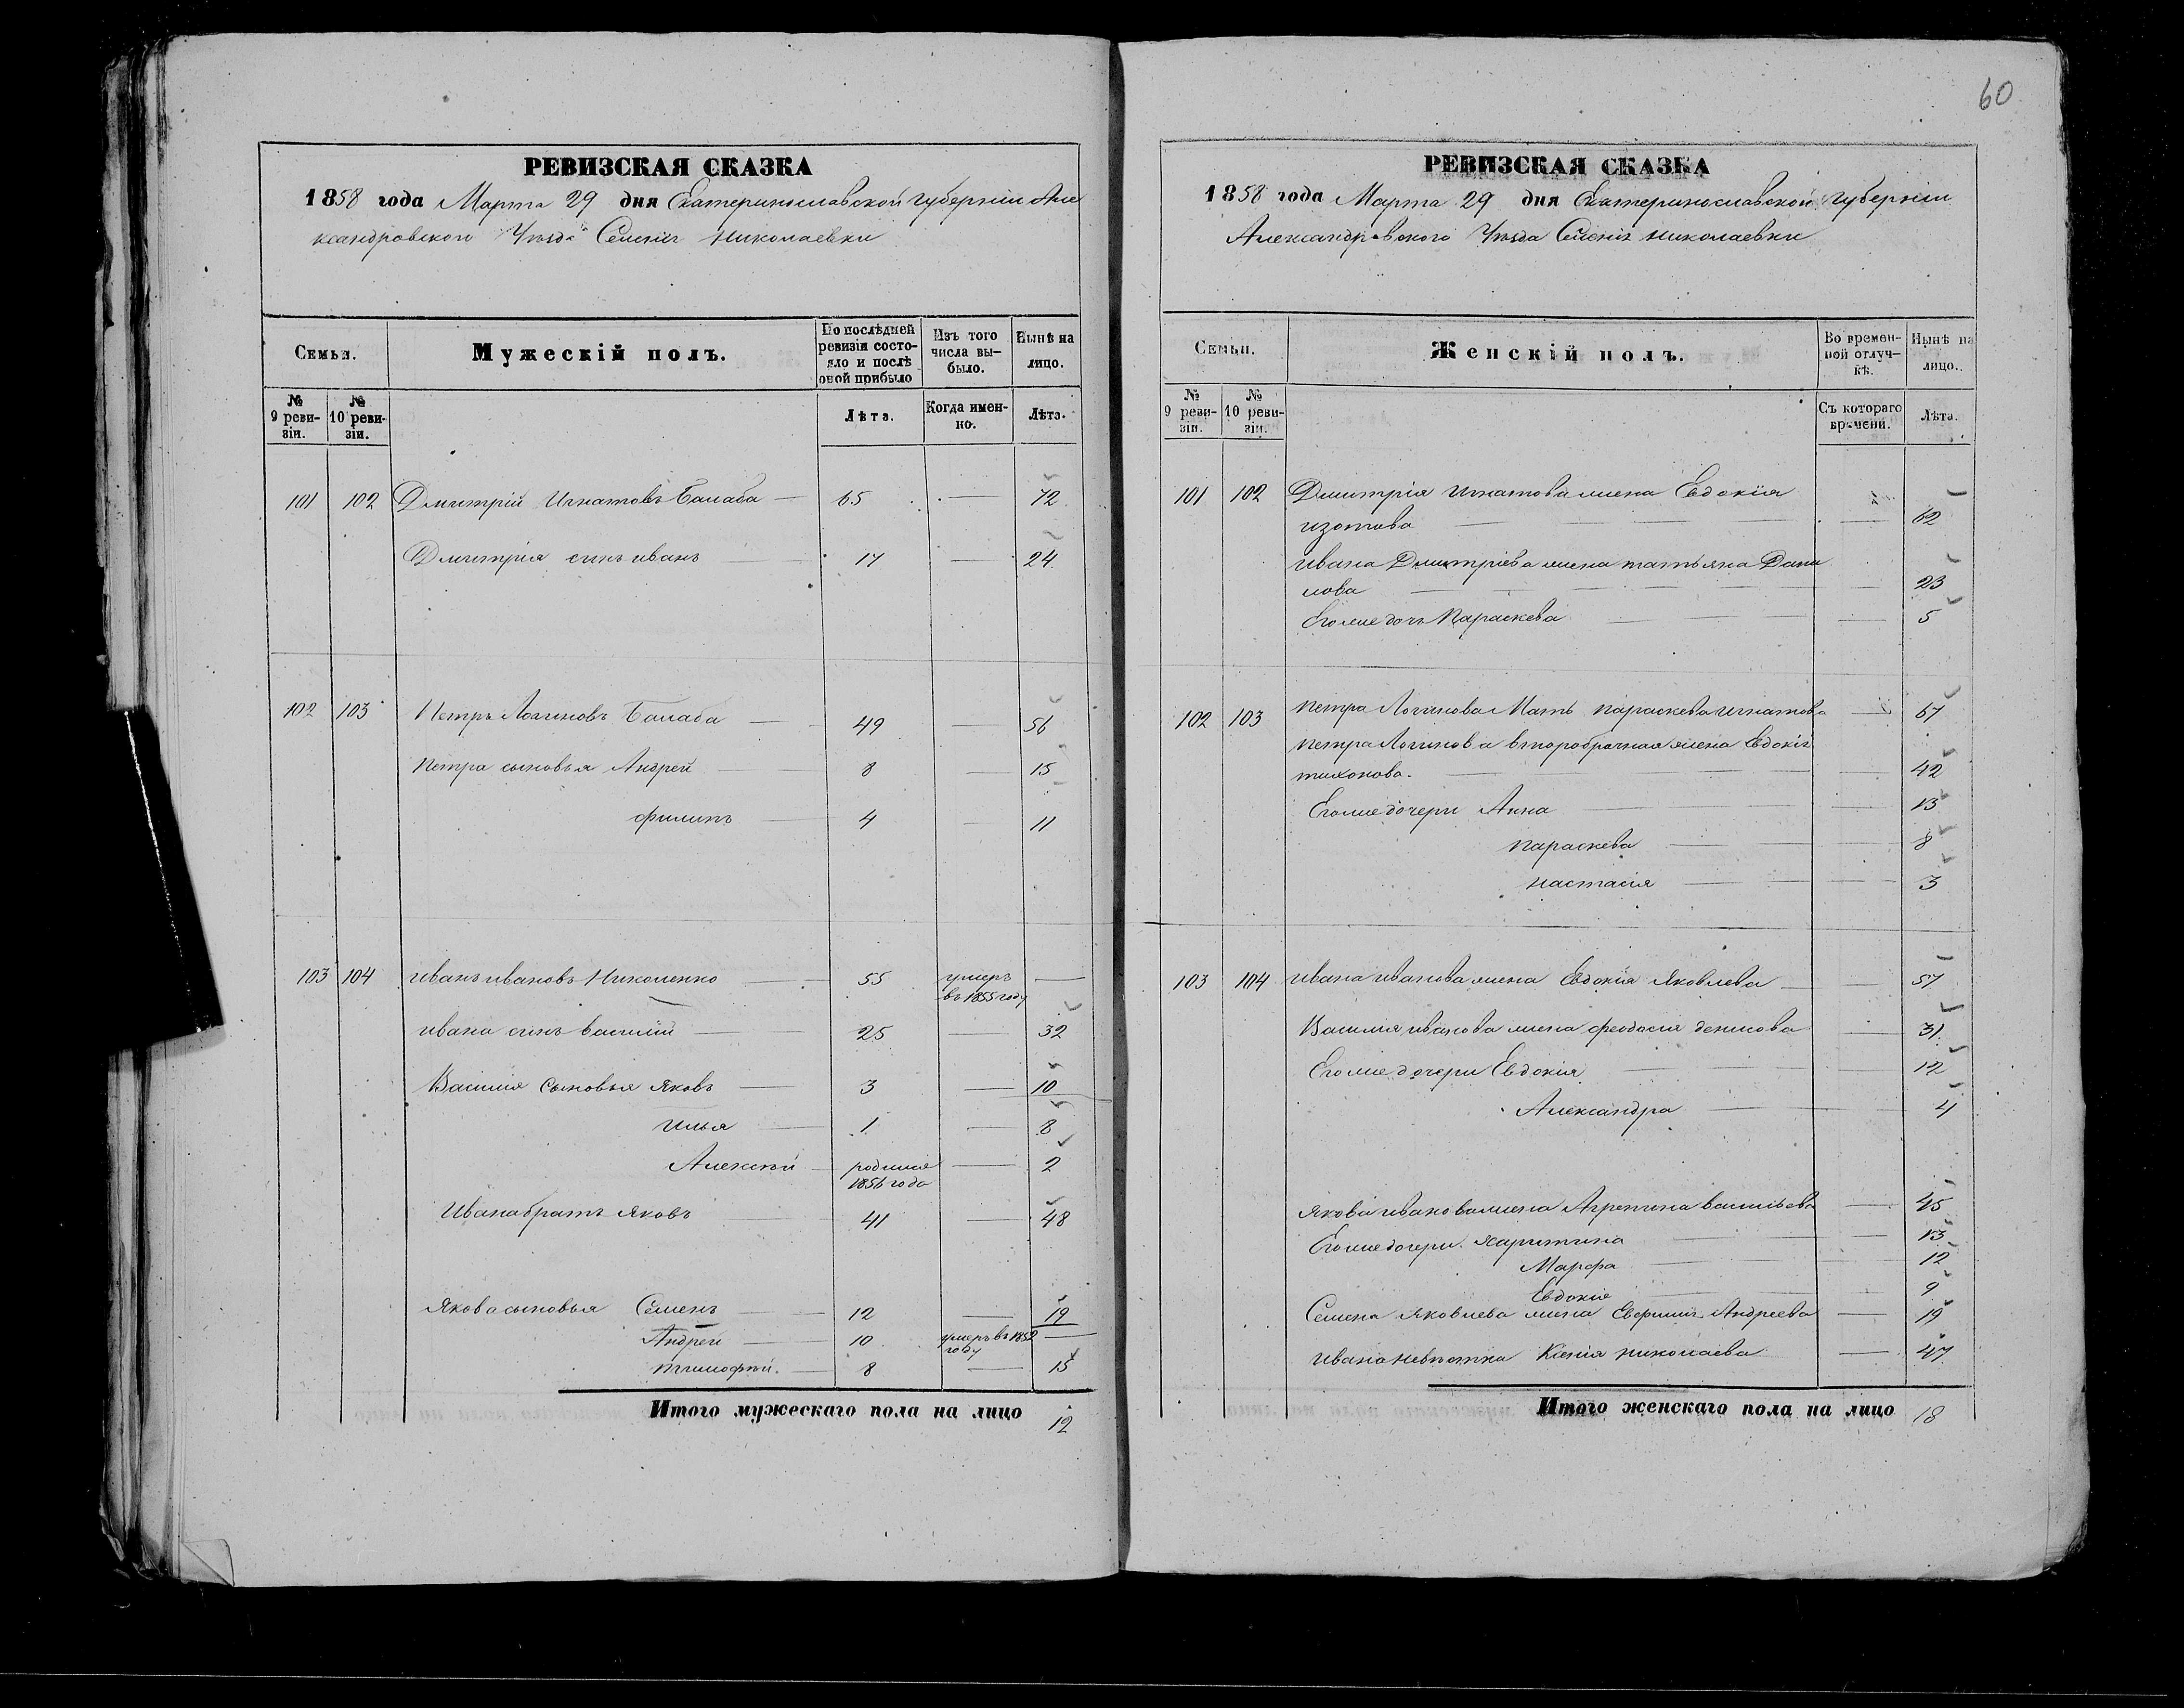 60
РЕВИЗСКАЯ СКАЗКА
1858 года Марта 29 дня Екатеринославской губерніи Але
ксандровского Уѣзда Селенія Николаевки
Семьи.
Мужескій полъ.
По послѣдней ревизіи состояло и послѣ оной прибыло
Изъ того числа выбыло.
Нынѣ на лицо.
№ 9 ревизіи.
№ 10 ревизіи.
Лѣта.
Когда именно.
Лѣта.
101 102 Дмитрій Игнатовъ Балаба — 65 — 72
Дмитрія сынъ иванъ — 17 — 24
102 103 Петръ Логиновъ Балаба — 49 — 56
Петра сыновья Андрей — 8 — 15
филипъ — 4 — 11
103 104 иванъ ивановъ Николенко — 55 умеръ въ 1855 году —
ивана сынъ василій — 25 — 32
Василия сыновья яковъ — 3 — 10
илья — 1 — 8
Алексѣй — родился 1856 года — 2
Ивана братъ яковъ — 41 — 48
якова сыновья Семенъ — 12 — 19
Андрей — 10 умеръ въ 1852 году —
тимофѣй. — 8 — 15
Итого мужескаго пола на лицо 12
РЕВИЗСКАЯ СКАЗКА
1858 года Марта 29 дня Екатеринославской губерніи
Александровского Уѣзда Селенія николаевки
Семьи.
Женскій полъ.
Во временной отлучкѣ.
Нынѣ на лицо.
№ 9 ревизіи.
№ 10 ревизіи.
Съ котораго времени.
Лѣта.
101 102 Дмитрія игнатова жена Евдокія
изотова — — 62
ивана Дмитріева жена татьяна Дани
лова — — 23
Его же дочь Параскева — — 5
102 103 Петра Логинова Мать параскева игнатова — 67
петра Логинова второбрачная жена Евдокія
тихонова. — — 42
Его же дочери Анна — — 13
параскева — — 8
настасія — — 3
103 104 ивана иванова жена Евдокія яковлева — — 57
Василия иванова жена феодосія денисова — 31
Его же дочери Евдокія — 12
Александра — — 4
якова иванова жена Агрепина васильева — 45
Его же дочери. харитина — — 13
Марфа — — 12
Евдокія — — 9
Семена яковлева жена Евфимия Андреева — 19
ивана невѣстка Ксенія николаева — 47
Итого женскаго пола на лицо 18